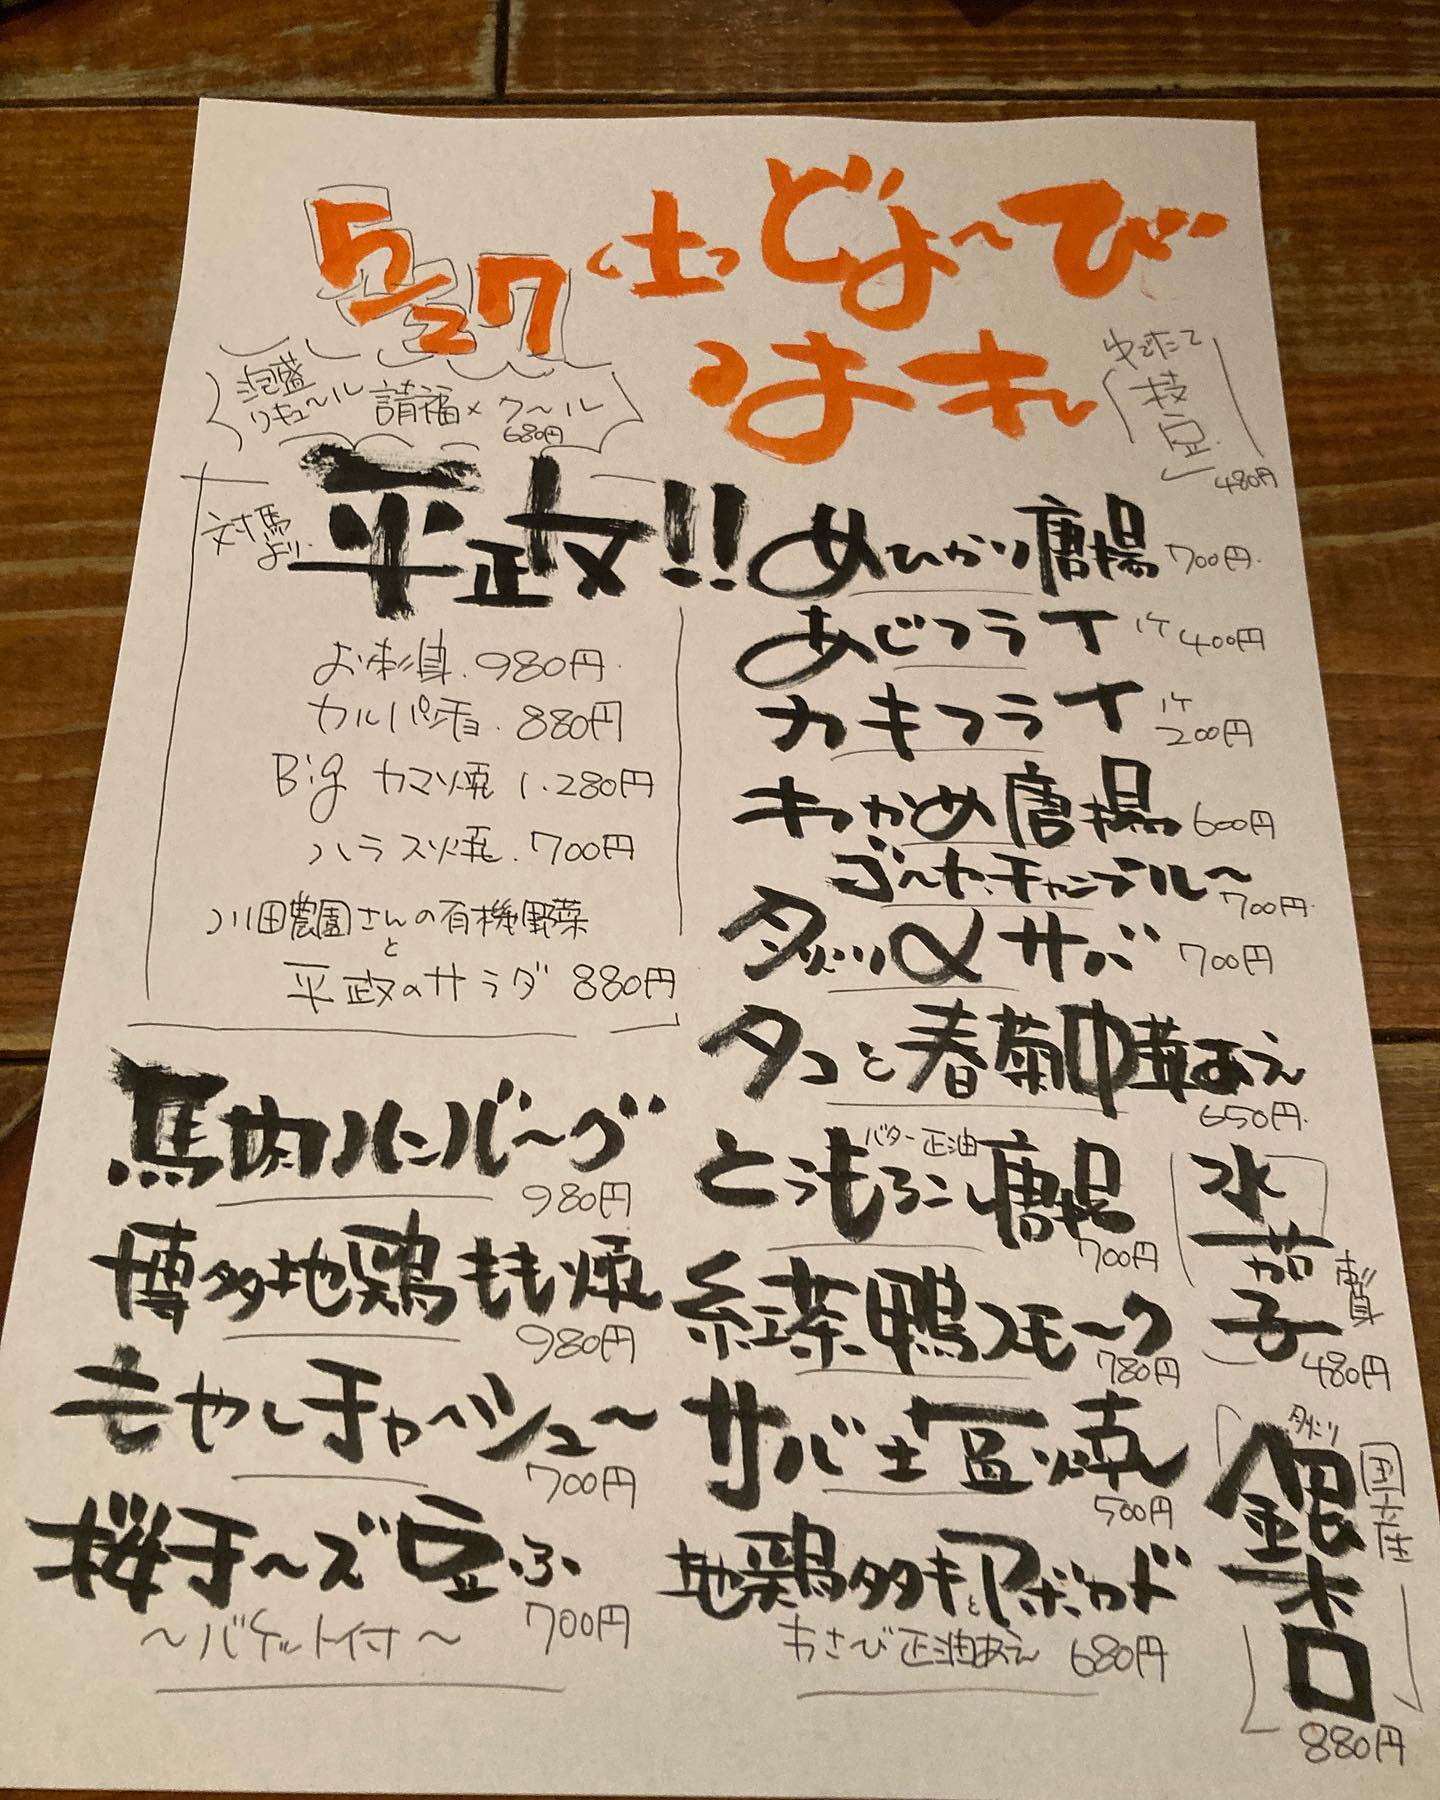 5/27(土)どよ〜び
はれ
泡盛
リキュール 請福×クール
680円
ゆでたて
枝豆
480円
対馬
より
平政!!
お刺身.980円
カルパッチョ.880円
Big カマ焼 1.280円
ハラス焼.700円
川田農園さんの有機野菜
と
平政のサラダ 880円
めひかり唐揚 700円
あじフライ 1ケ 400円
カキフライ 1ケ 200円
わかめ唐揚 600円
ゴーヤ.チャンプル〜
700円
炙り〆サバ 700円
タコと春菊中華あえ
650円
バター正油
とうもろこし唐揚
700円
紅茶鴨スモーク
780円
サバ士豆焼
500円
地鶏タタキとアボカド
わさび正油あえ 680円
馬肉ハンバーグ
980円
博多地鶏もも焼
980円
もやしチャーシュー
700円
桜チーズ豆ふ
700円
〜バゲット付〜
水茄子
刺身
480円
炙り
国産
銀杏
880円